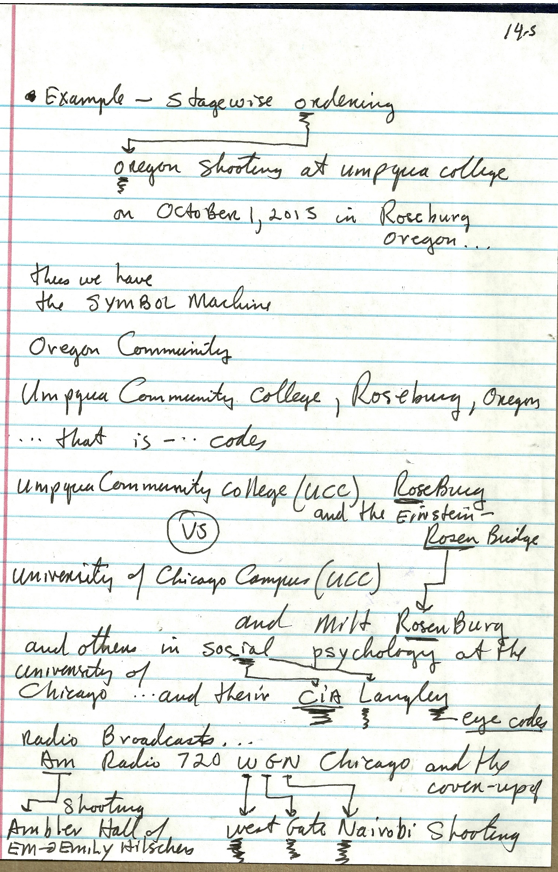 14.5
• Example — Stagewise ordening
oregon Shooting at umpqua college
on OCTOBER 1, 2015 in Roseburg
oregon...
thus we have
the SYMBOL Machine
Oregon Community
Umpqua Community college, Roseburg, Oregon
... that is -... codes
umpqua Community college (UCC) RoseBurg
and the Einstein-
Rosen Bridge
VS
university of Chicago Campus (UCC)
and Milt RosenBurg
and others in social psychology at the
university of
Chicago ... and their CiA Langley
eye codes
Radio Broadcasts...
Am Radio 720 WGN Chicago and the
coven-up of
Shooting
Ambler Hall of west Gate Nairobi Shooting
EM→Emily Hilschers